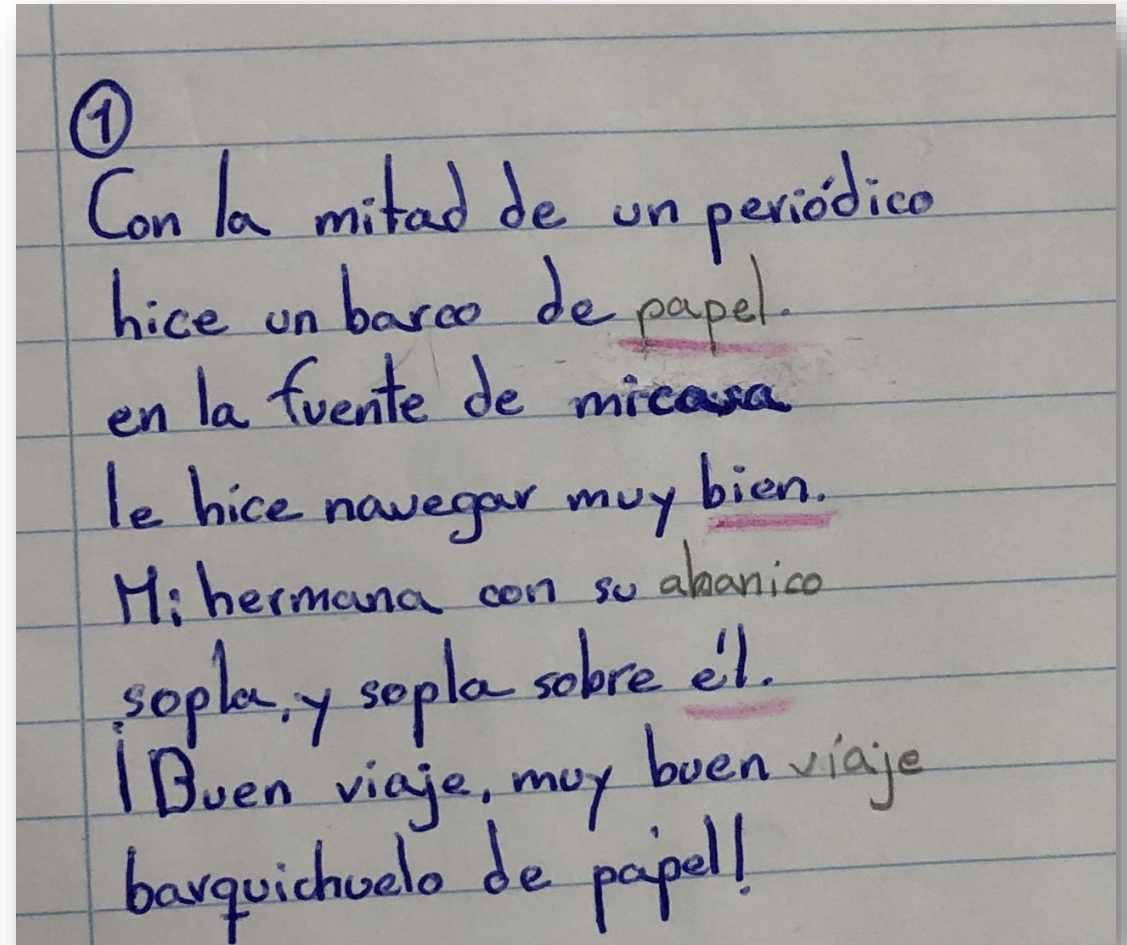 ①
Con la mitad de un periódico
hice un barco de papel.
en la fuente de micasa
le hice navegar muy bien.
Mi hermana con su abanico
sopla, y sopla sobre él.
¡Buen viaje, muy buen viaje
barquichuelo de papel!